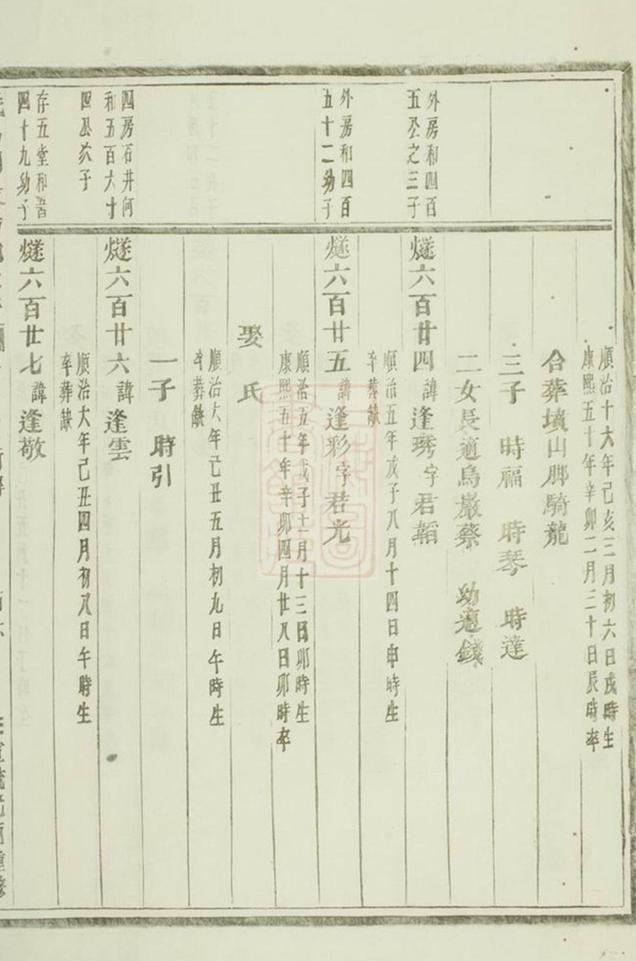 順治十六年己亥三月初六日戌時生
康熙五十年辛卯二月三十日辰時卒
合葬墳山脚騎龍
三子 時福 時琴 時達
二女長適烏巖蔡 幼適錢
外房和四百
五公之三子
燧六百廿四諱逢琇字君韜
順治五年戊子八月十四日申時生
卒葬缺
外房和四百
五十二幼子
燧六百廿五諱逢彩字君光
順治五年戊子十一月十三日卯時生
康熙五十年辛卯四月廿八日卯時卒
娶氏
順治六年己丑五月初九日午時生
卒葬缺
一子 時引
四房石井何
和五百六十
四公次子
燧六百廿六諱逢雲
順治六年己丑四月初八日午時生
卒葬缺
存五堂和晋
四十九幼子
燧六百廿七諱逢敬